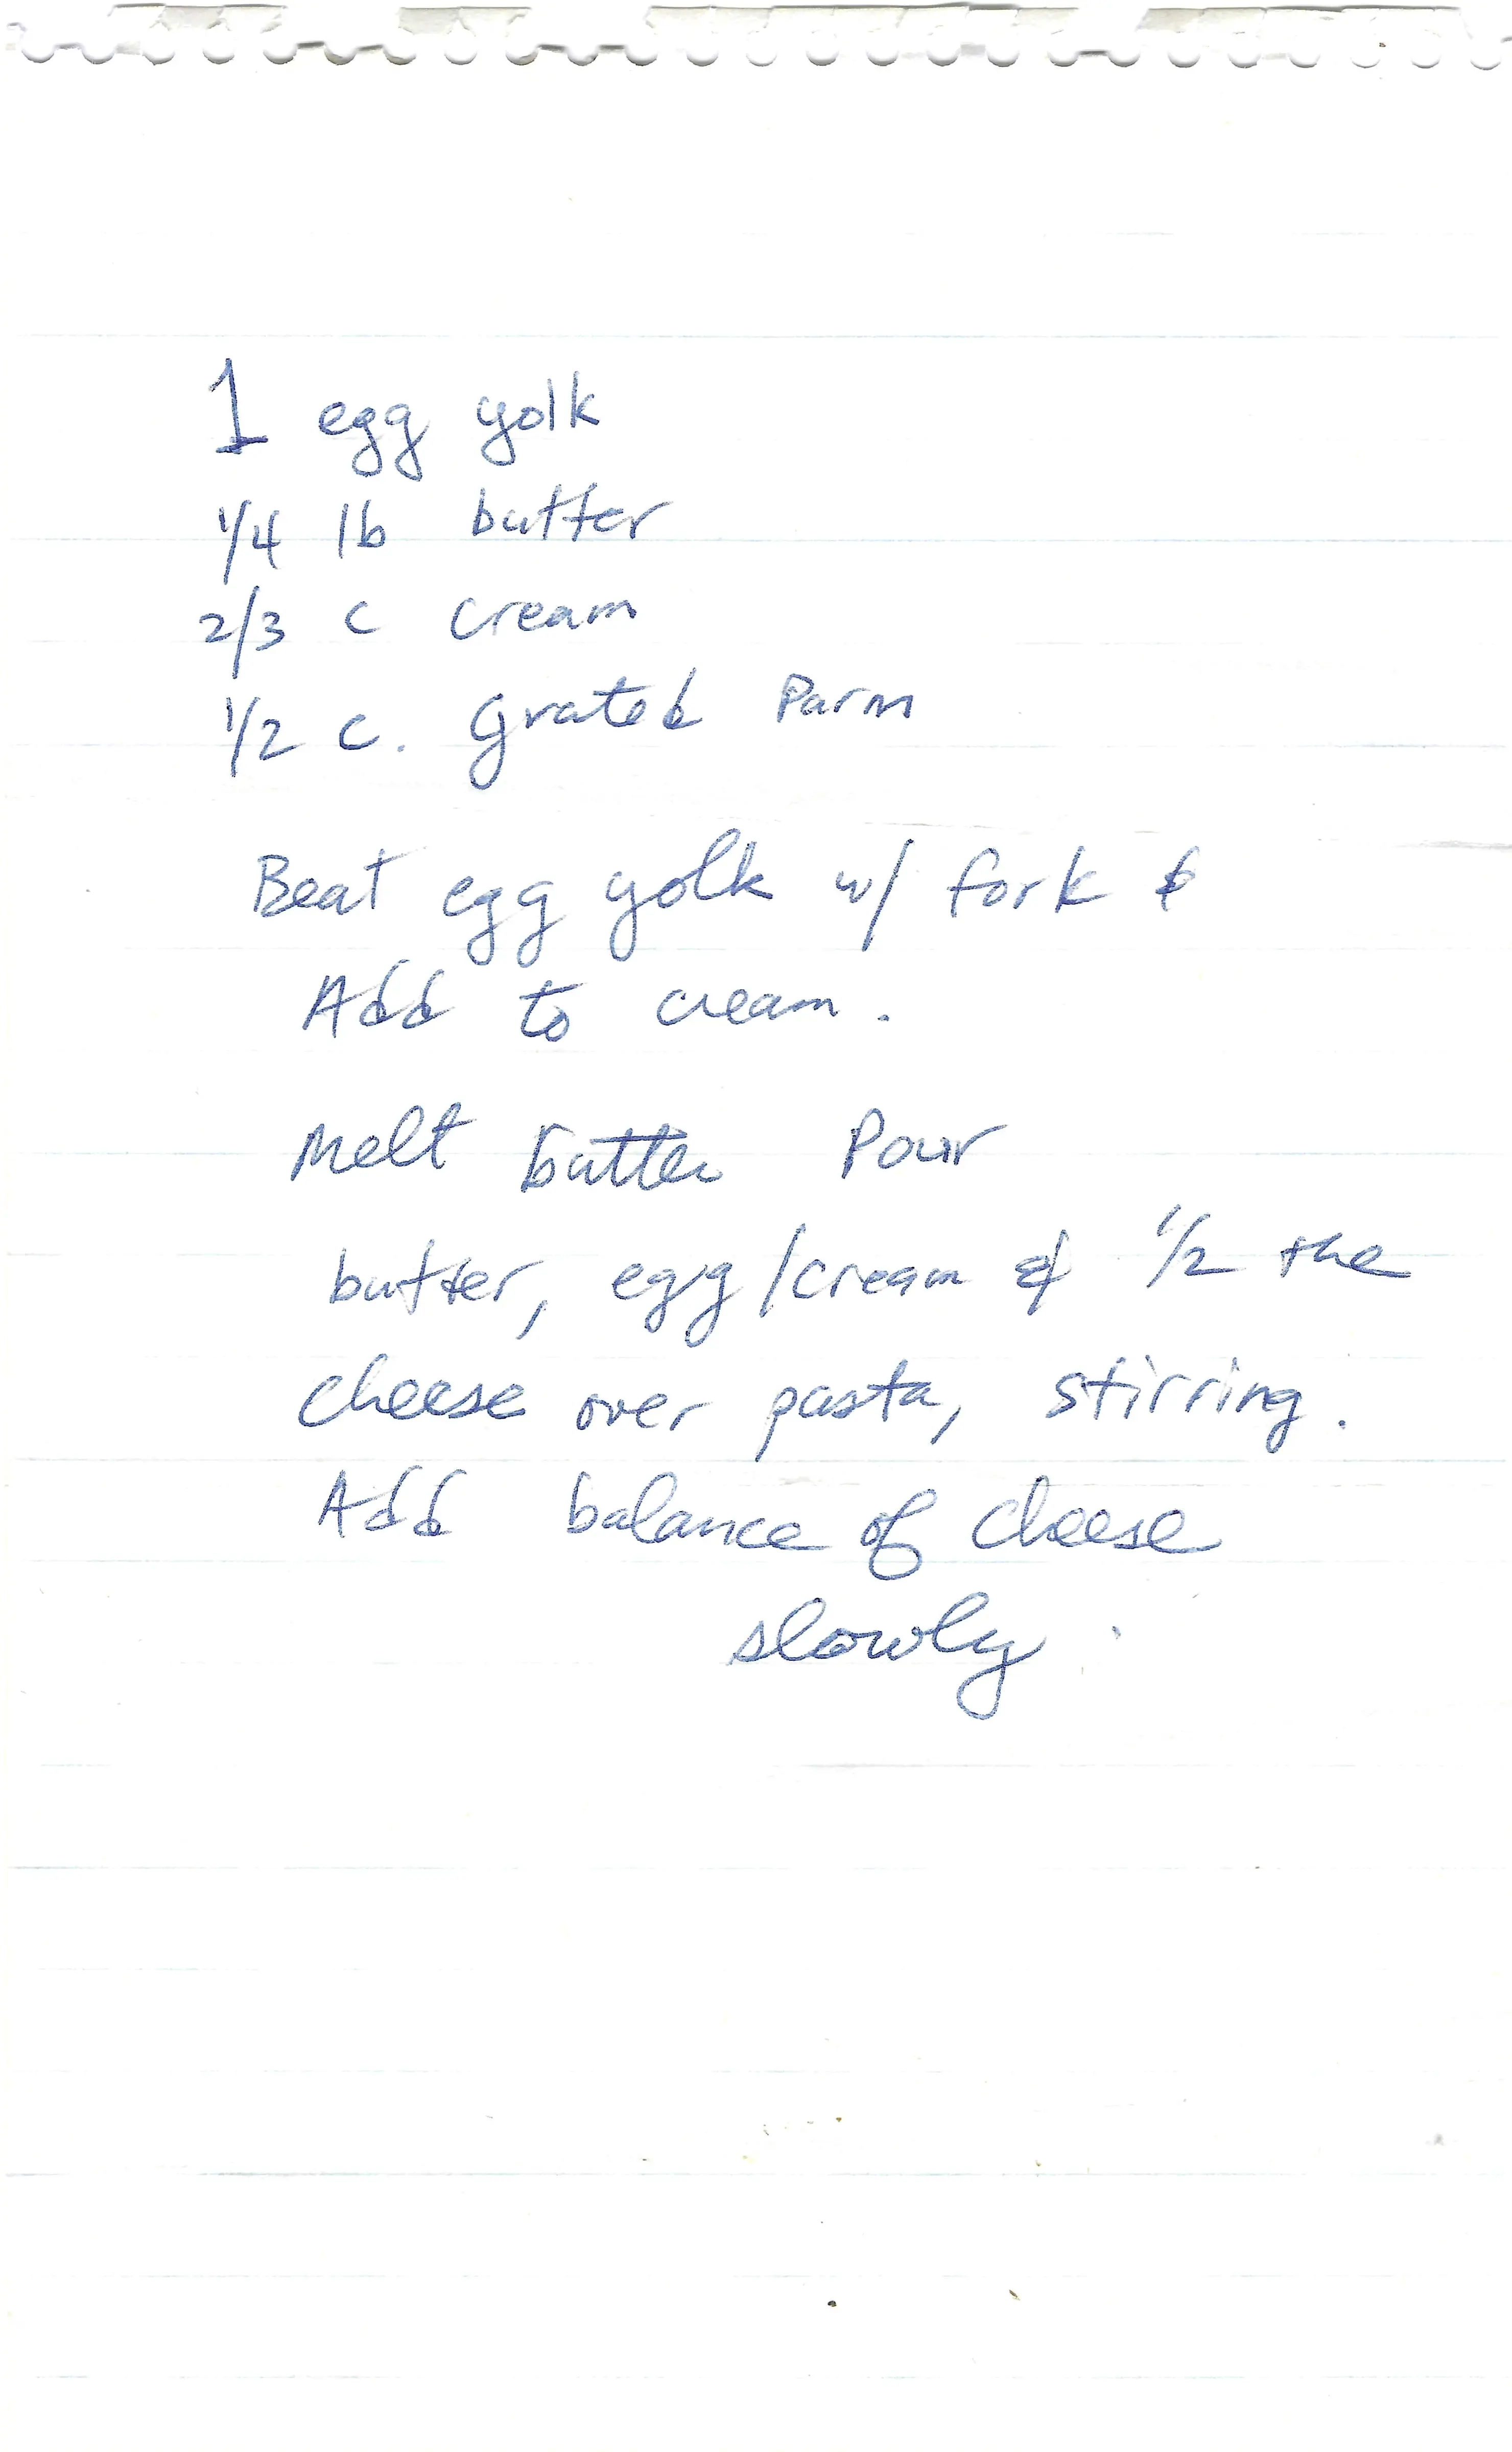 1 egg yolk
1/4 lb butter
2/3 c cream
1/2 c. Grated Parm
Beat egg yolk w/ fork &
Add to cream.
Melt butter Pour
butter, egg/cream & 1/2 the
cheese over pasta, stirring.
Add balance of cheese
slowly.